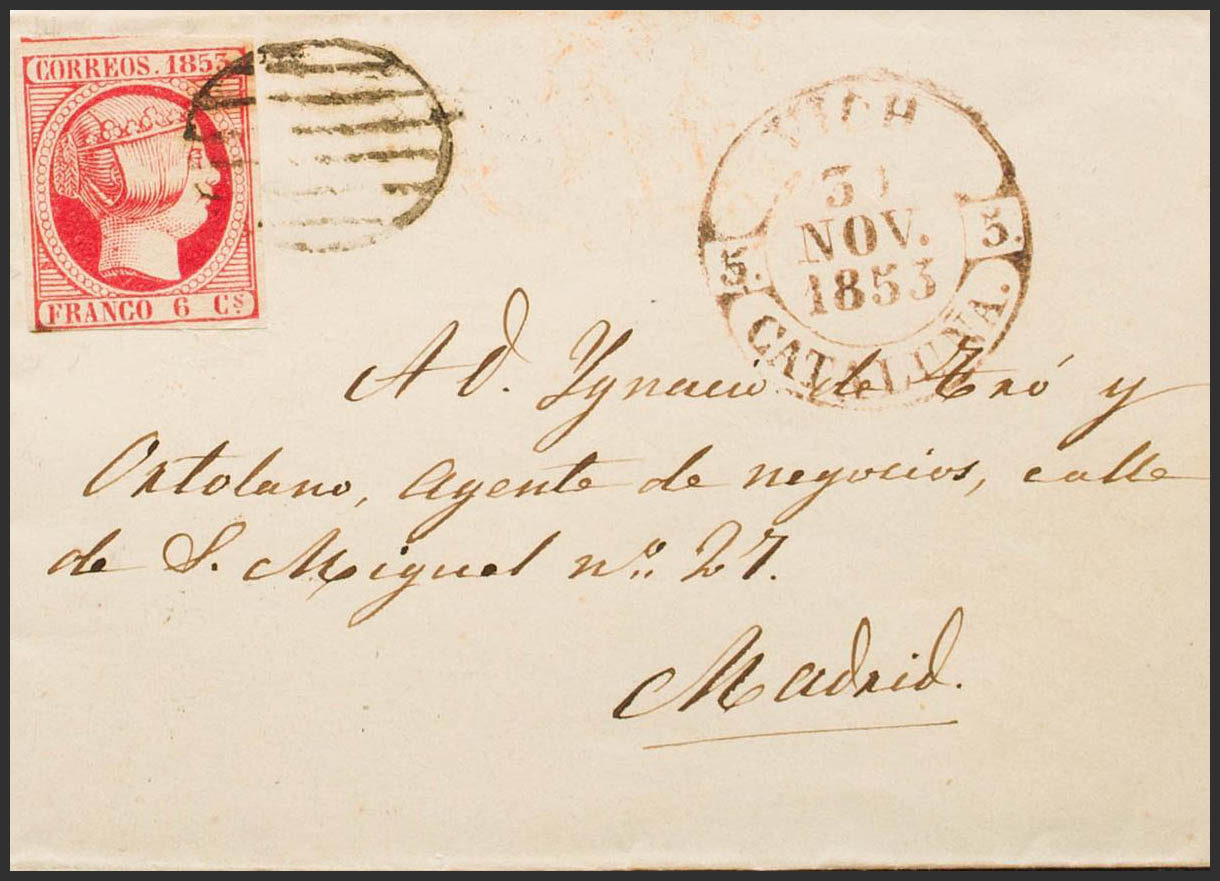 CORREOS. 1853
FRANCO 6 Cs
VICH
NOV.
1853
5. 5.
CATALUÑA.
A D. Ygnacio de Tró y
Ortolano, agente de negocios, calle
de S. Miguel nº. 27.
Madrid.